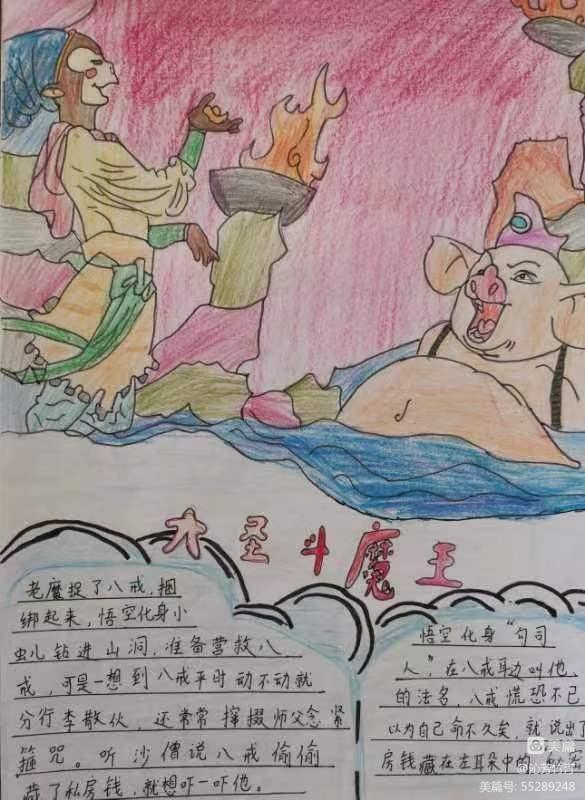 大圣斗魔王
老魔捉了八戒,捆
绑起来,悟空化身小
虫儿钻进山洞,准备营救八
戒,可是一想到八戒平时动不动就
分行李散伙,还常常撺掇师父念紧
箍咒。听沙僧说八戒偷偷
藏了私房钱,就想吓一吓他。
悟空化身“勾司
人”,在八戒耳边叫他
的法名,八戒慌恐不已
以为自己命不久矣,就说出了
房钱藏在左耳朵中的
美篇
美篇号: 55289248